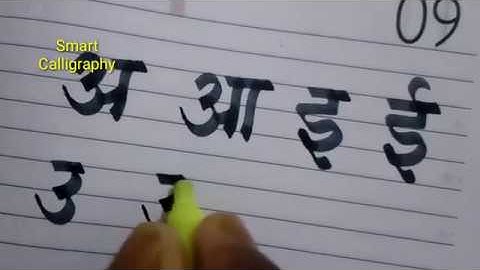 09
Smart
Calligraphy
अ आ इ ई
उ